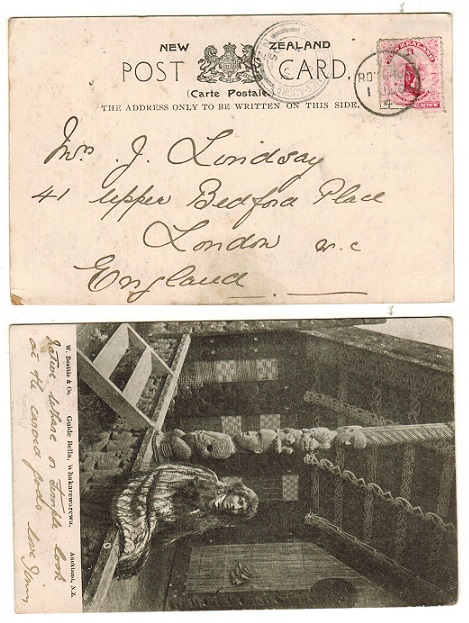 NEW ZEALAND
POST CARD.
(Carte Postale.)
THE ADDRESS ONLY TO BE WRITTEN ON THIS SIDE.
NEW ZEALAND
Mrs J. Lindsay
41 Upper Bedford Place
London W.C
England
W. Beattie & Co. Guide Bella, Whakarewarewa. Auckland, N.Z.
Native whare or
look
at the carved gods love